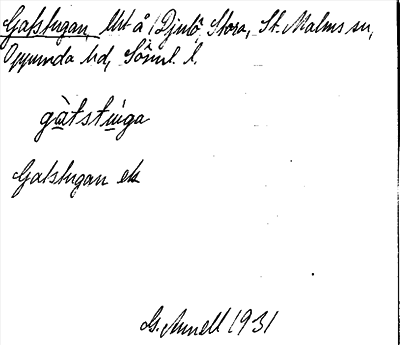 Gatstugan, lht å Djulö Stora, St. Malms sn,
Oppunda hd, Söml. l.
gàtstúga
Gatstugan ek
G. Annell 1931